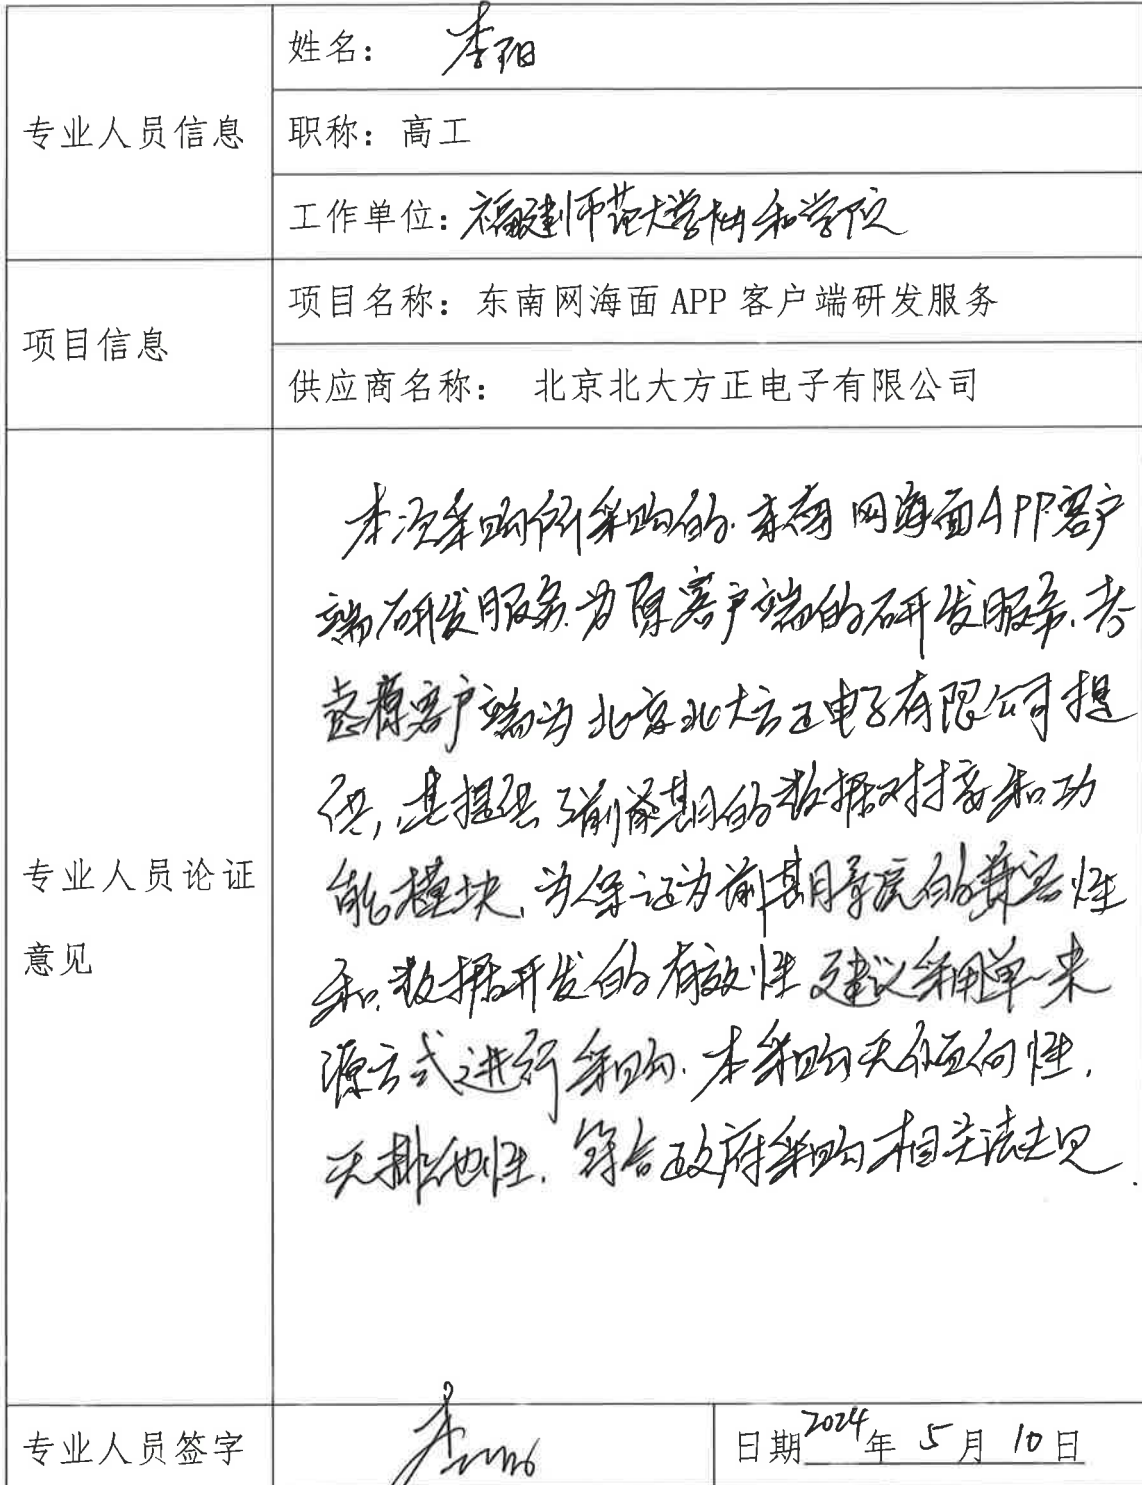 姓名： 李阳
专业人员信息
职称：高工
工作单位：福建师范大学协和学院
项目名称：东南网海面 APP 客户端研发服务
项目信息
供应商名称： 北京北大方正电子有限公司
本次采购所采购的东南网海面APP客户
端研发服务为原客户端的研发服务,考
虑原客户端为北京北大方正电子有限公司提
供,其提供了前期的数据对接和功
能模块,为保证为前期系统的兼容性
和数据开发的有效性 建议采用单一来
源方式进行采购.本采购无倾向性,
无排他性.符合政府采购相关法规.
专业人员论证
意见
专业人员签字
日期2024年 5月 10日